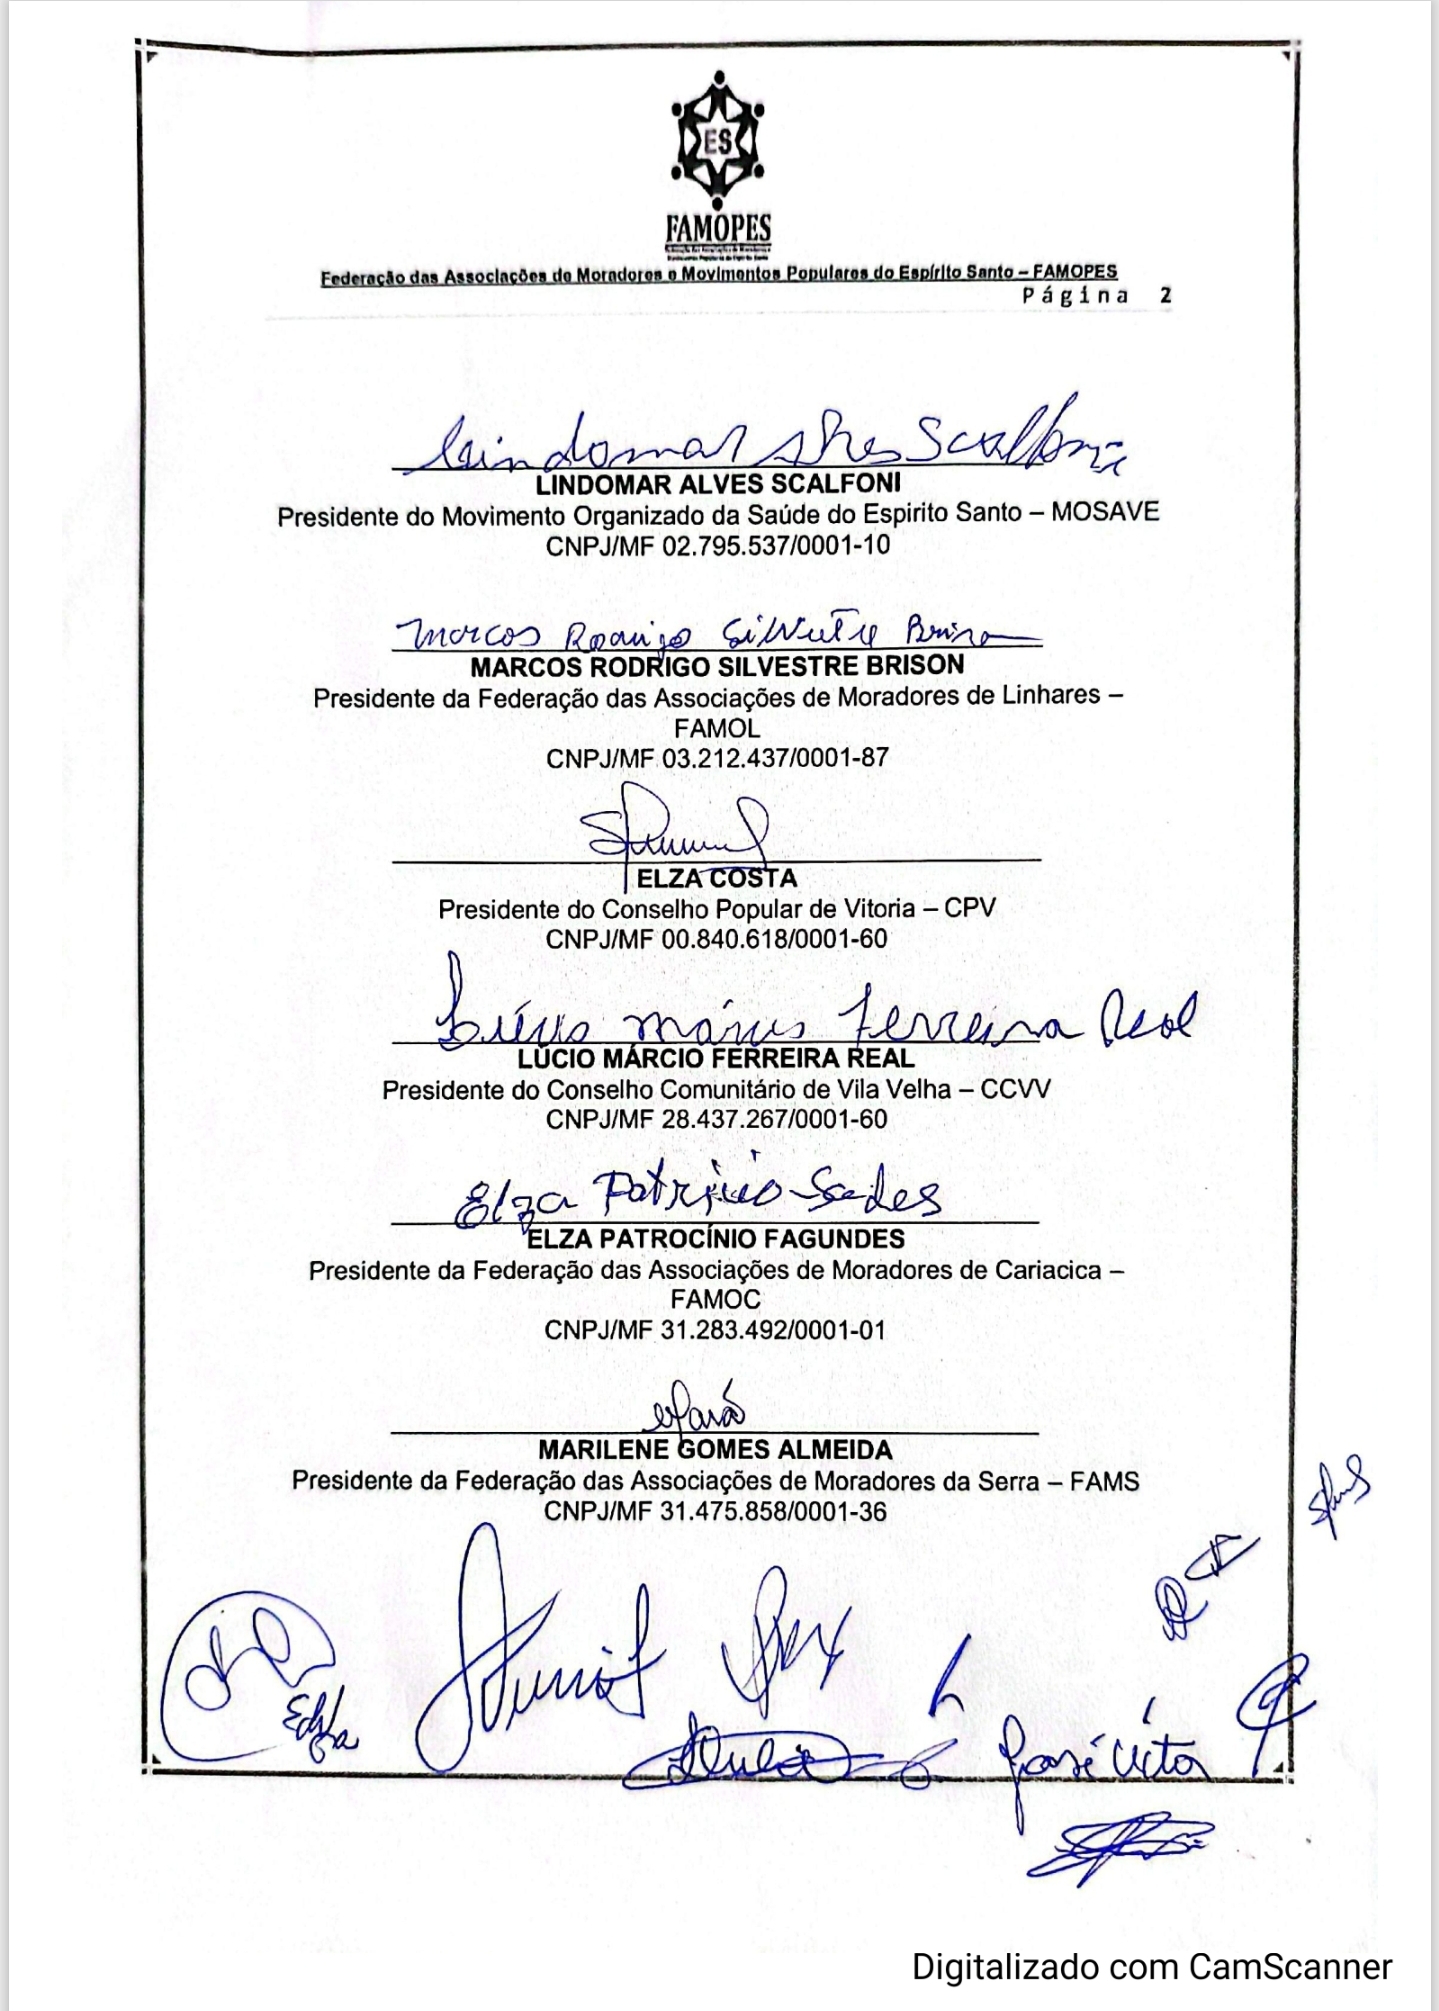 ES
FAMOPES
Federação das Associações de Moradores e Movimentos Populares do Espírito Santo – FAMOPES
Página 2
Lindomar Alves Scalfoni
LINDOMAR ALVES SCALFONI
Presidente do Movimento Organizado da Saúde do Espirito Santo – MOSAVE
CNPJ/MF 02.795.537/0001-10
Marcos Rodrigo Silvestre Brison
MARCOS RODRIGO SILVESTRE BRISON
Presidente da Federação das Associações de Moradores de Linhares –
FAMOL
CNPJ/MF 03.212.437/0001-87
ELZA COSTA
Presidente do Conselho Popular de Vitoria – CPV
CNPJ/MF 00.840.618/0001-60
Lúcio Márcio Ferreira Real
LÚCIO MÁRCIO FERREIRA REAL
Presidente do Conselho Comunitário de Vila Velha – CCVV
CNPJ/MF 28.437.267/0001-60
Elza
ELZA PATROCÍNIO FAGUNDES
Presidente da Federação das Associações de Moradores de Cariacica –
FAMOC
CNPJ/MF 31.283.492/0001-01
MARILENE GOMES ALMEIDA
Presidente da Federação das Associações de Moradores da Serra – FAMS
CNPJ/MF 31.475.858/0001-36
José
Digitalizado com CamScanner